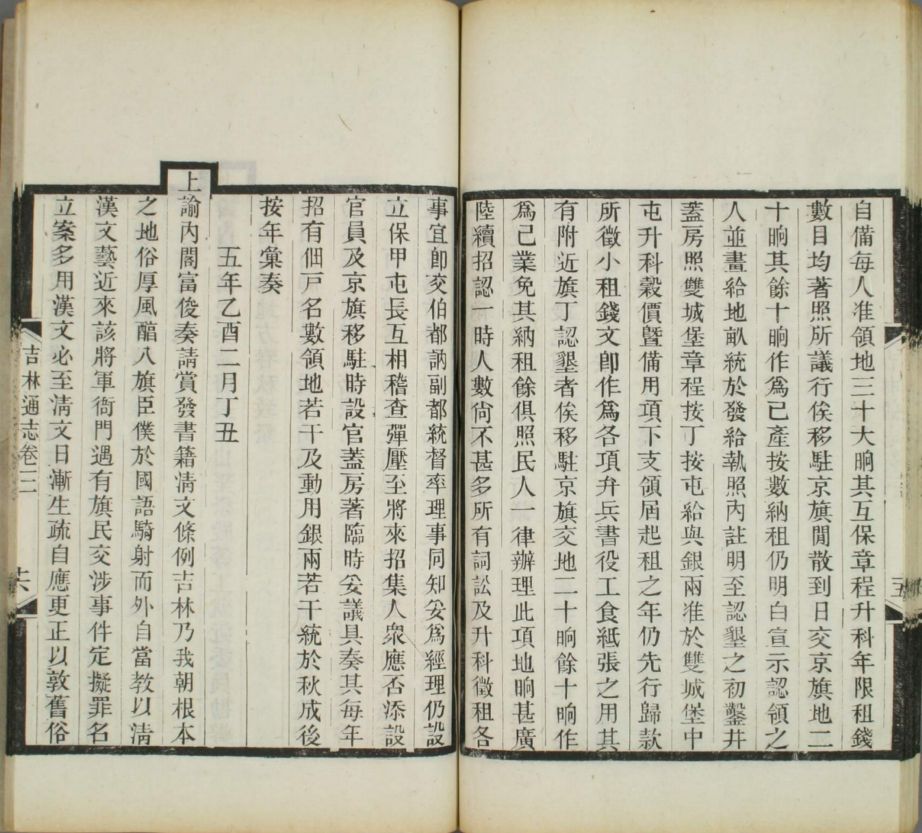 自備每人准領地三十大晌其互保章程升科年限租錢
數目均著照所議行俟移駐京旗閒散到日交京旗地二
十晌其餘十晌作爲己產按數納租仍明白宣示認領之
人並畫給地畝統於發給執照內註明至認墾之初鑿井
蓋房照雙城堡章程按丁按屯給與銀兩准於雙城堡中
屯升科穀價曁備用項下支領屆起租之年仍先行歸款
所徵小租錢文卽作爲各項弁兵書役工食紙張之用其
有附近旗丁認墾者俟移駐京旗交地二十晌餘十晌作
爲己業免其納租餘俱照民人一律辦理此項地晌甚廣
陸續招認一時人數尙不甚多所有詞訟及升科徵租各
事宜卽交伯都訥副都統督率理事同知妥爲經理仍設
立保甲屯長互相稽查彈壓至將來招集人衆應否添設
官員及京旗移駐時設官蓋房著臨時妥議具奏其每年
招有佃戶名數領地若干及動用銀兩若干統於秋成後
按年彙奏
五年乙酉二月丁丑
上諭內閣富俊奏請賞發書籍淸文條例吉林乃我朝根本
之地俗厚風醕八旗臣僕於國語騎射而外自當敎以淸
漢文藝近來該將軍衙門遇有旗民交涉事件定擬罪名
立案多用漢文必至淸文日漸生疏自應更正以敦舊俗
吉林通志卷三
十六